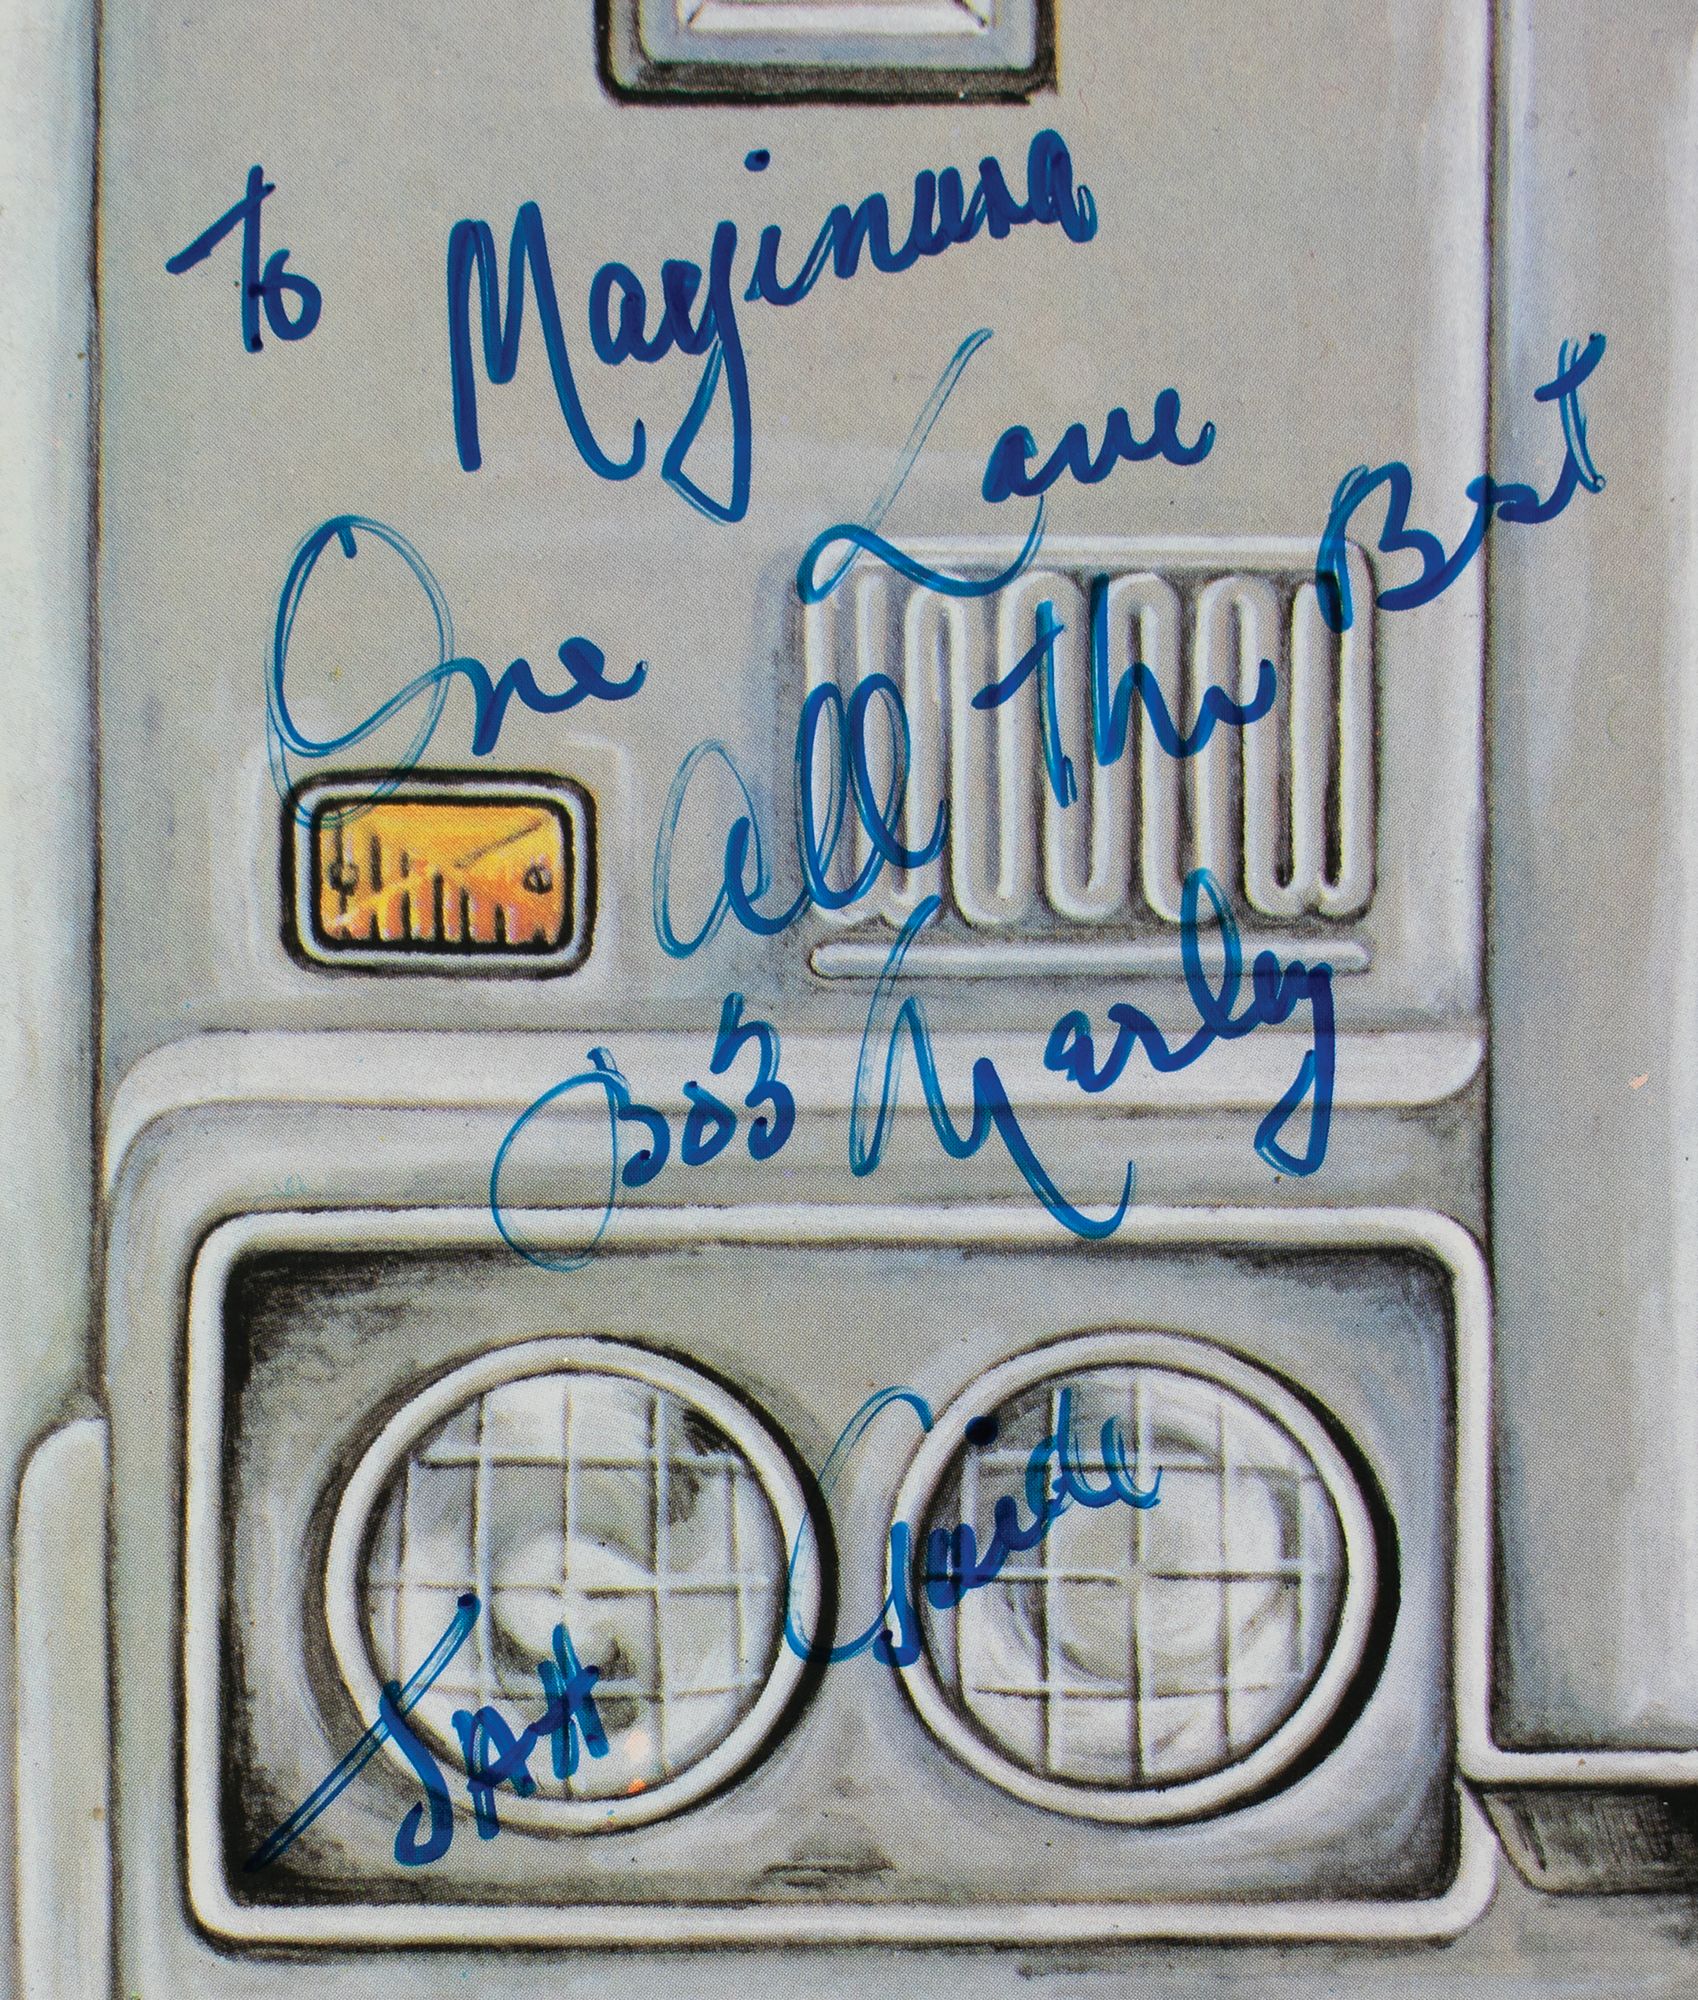 To
One Love
all The Best
BoB Marley
JAH Guide